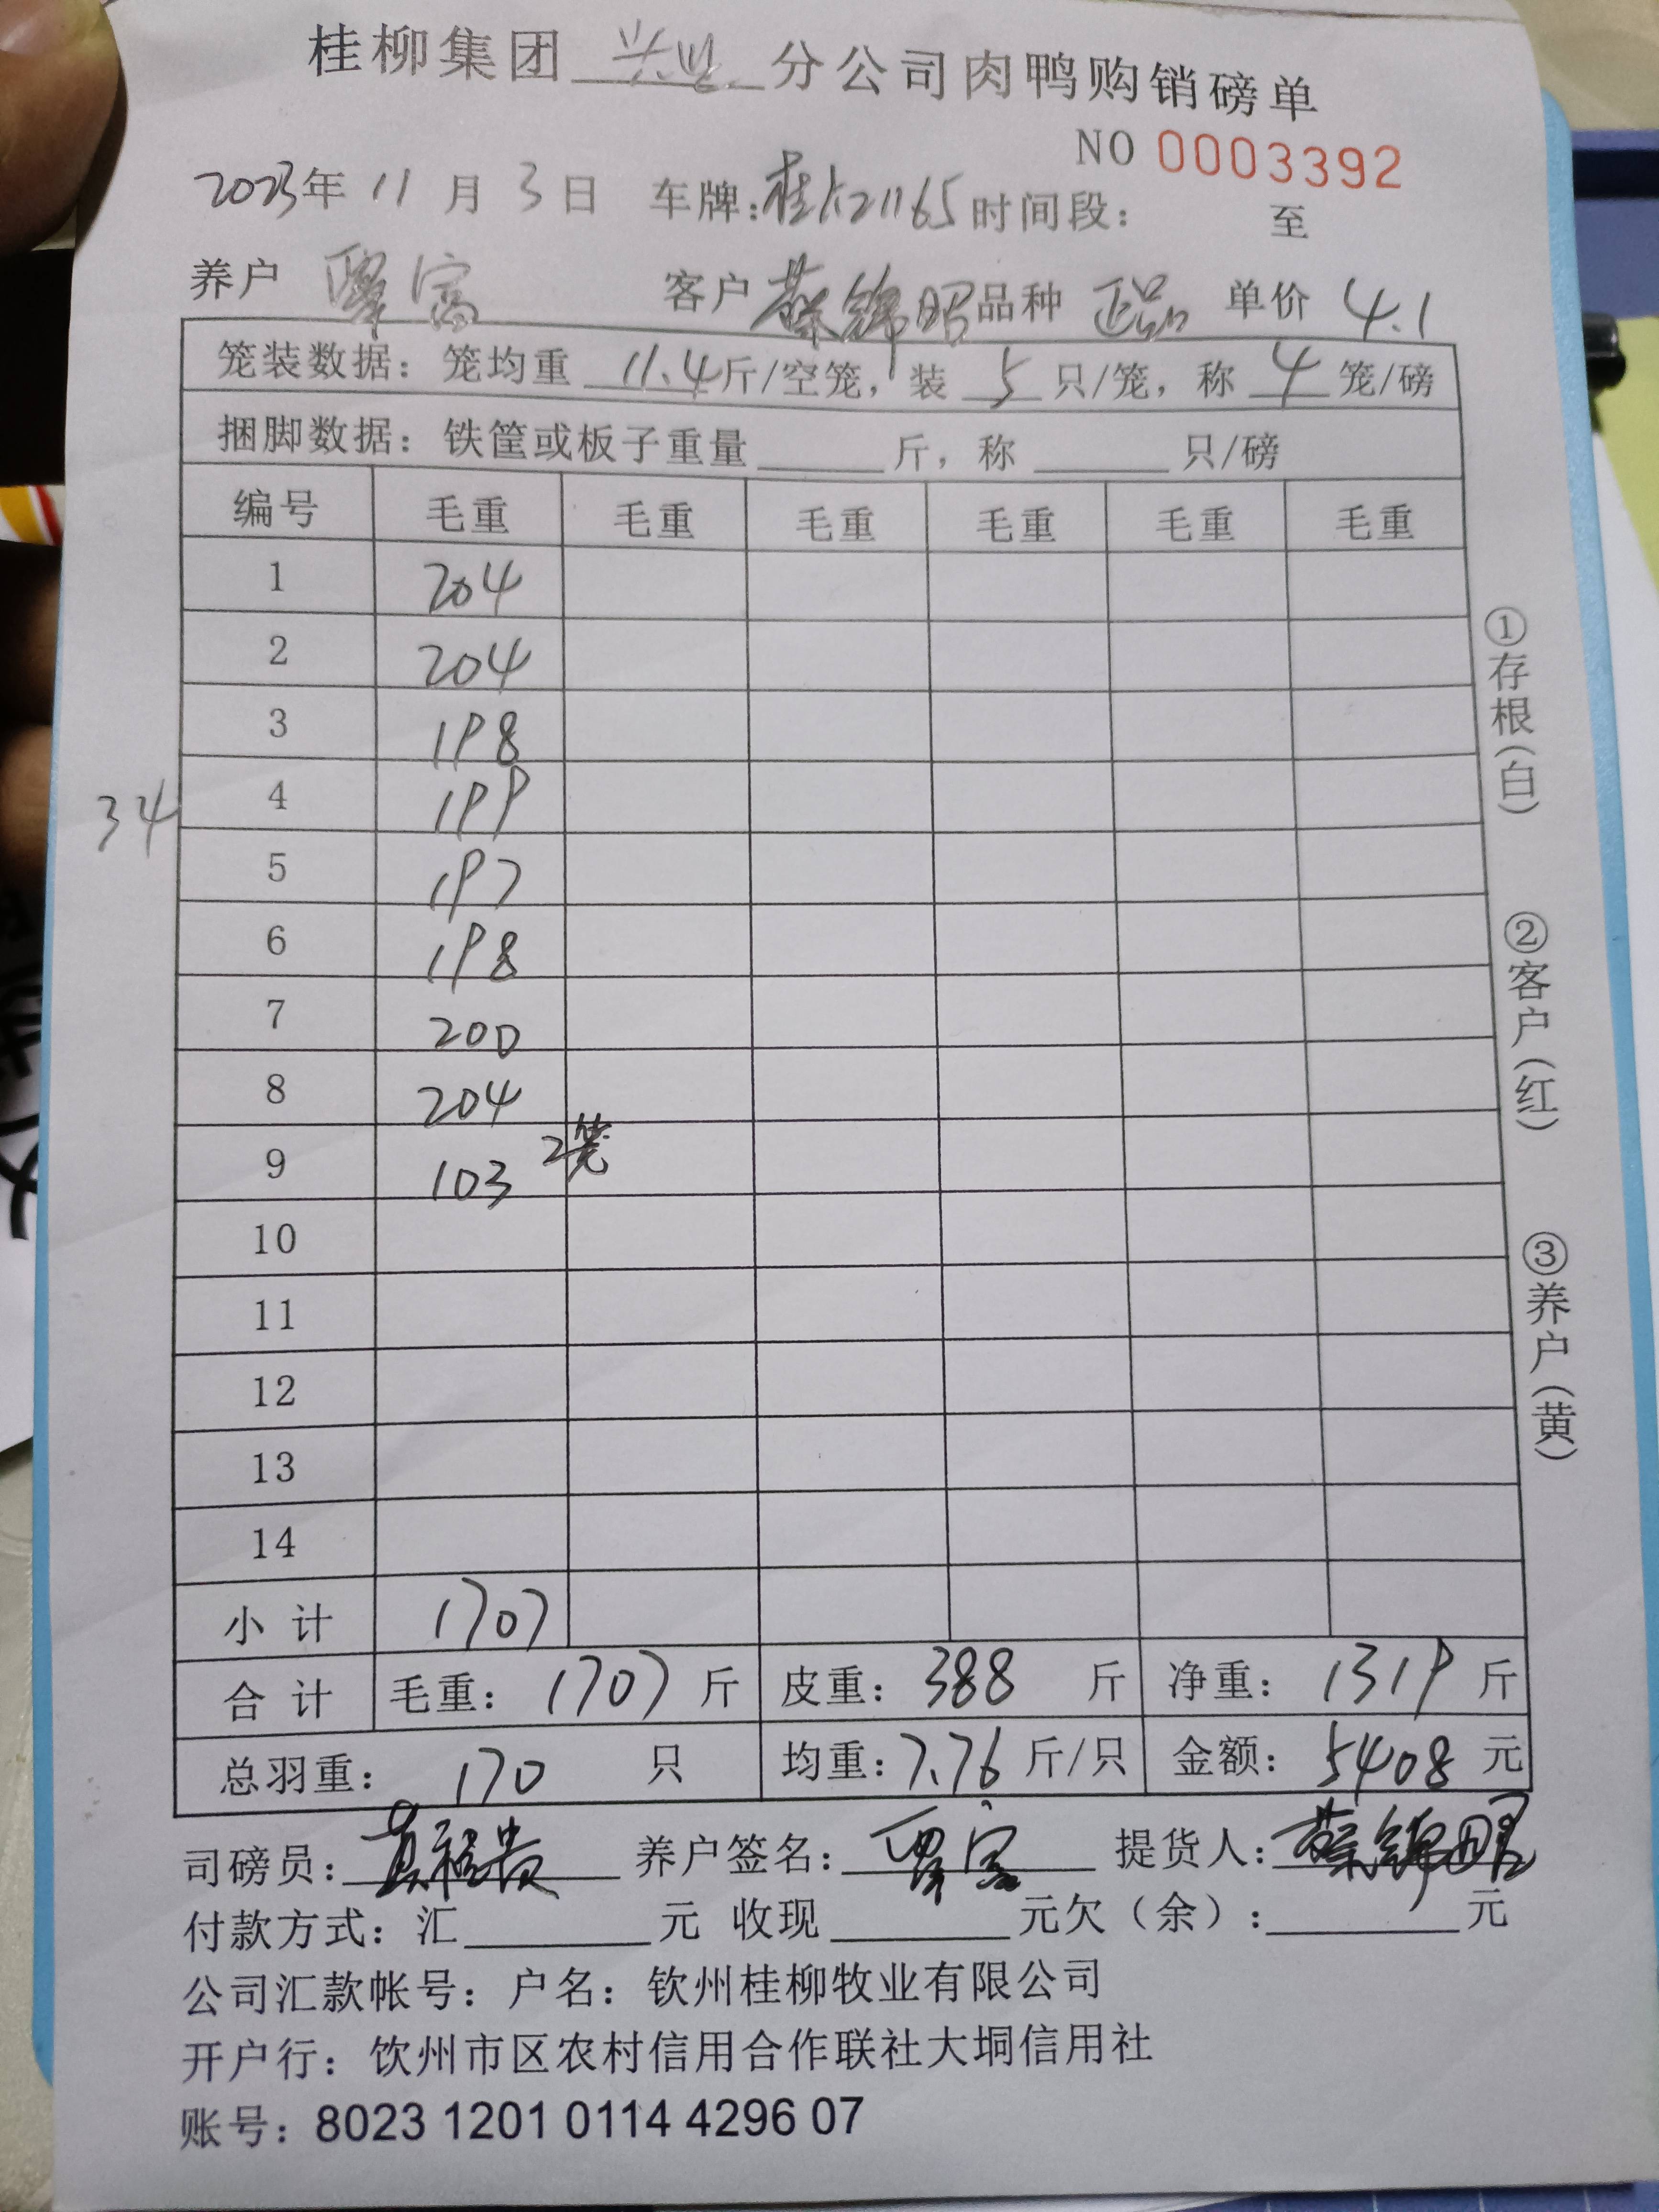 桂柳集团 兴业 分公司肉鸭购销磅单
NO 0003392
2023年 11 月 3 日 车牌:桂K21165 时间段: 至
养户 覃富 客户 蔡锦昭 品种 正品 单价 4.1
笼装数据:笼均重 11.4 斤/空笼,装 5 只/笼,称 4 笼/磅
捆脚数据:铁筐或板子重量 斤,称 只/磅
编号 毛重 毛重 毛重 毛重 毛重 毛重
1 204
2 204
3 198
34
4 199
5 197
6 198
7 200
8 204
9 103 2笼
10
11
12
13
14
小 计 1707
合 计 毛重: 1707 斤 皮重: 388 斤 净重: 1319 斤
总羽重: 170 只 均重: 7.76 斤/只 金额: 5408 元
司磅员: 养户签名: 覃富 提货人: 蔡锦昭
付款方式:汇 元 收现 元欠(余): 元
公司汇款帐号:户名:钦州桂柳牧业有限公司
开户行:钦州市区农村信用合作联社大垌信用社
账号:8023 1201 0114 4296 07
①存根(白)
②客户(红)
③养户(黄)